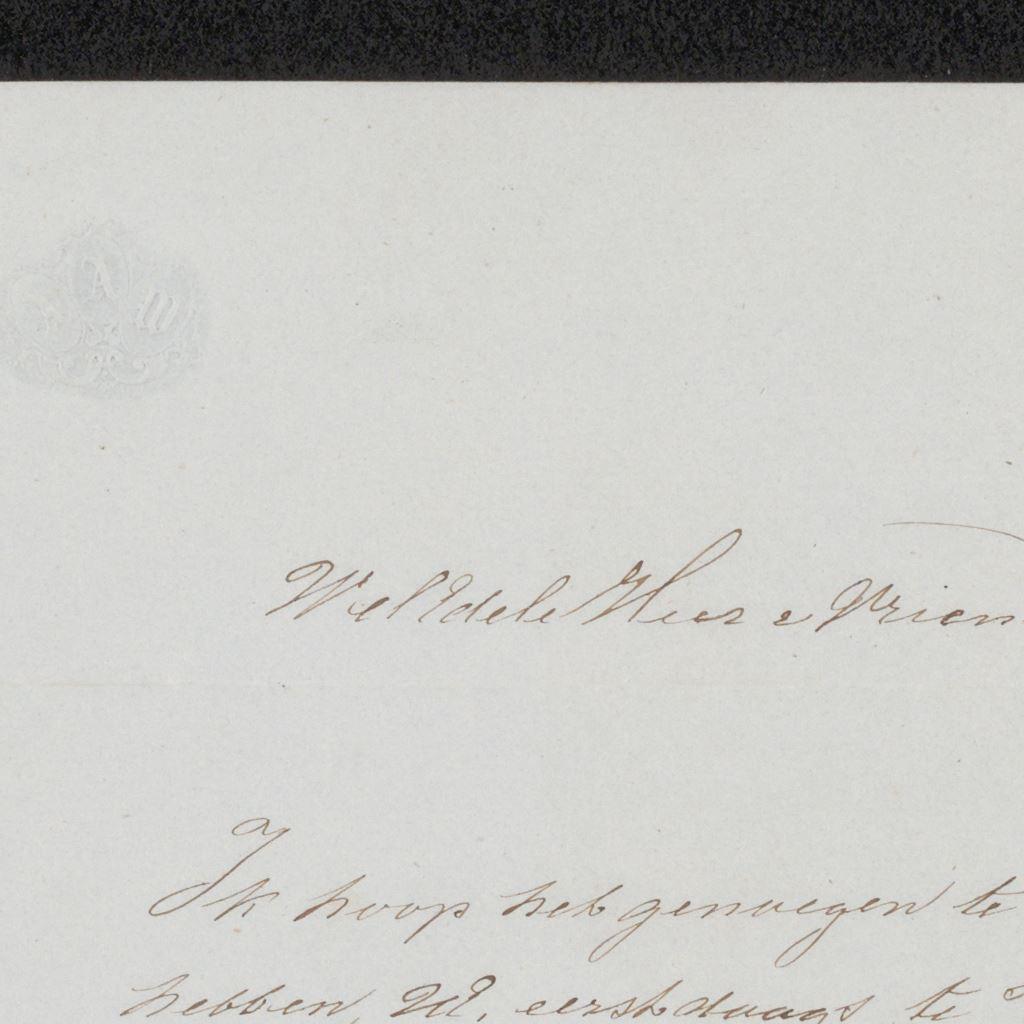 A W
WelEdele Heer & Vrien
Ik hoop het genoegen te
hebben, UE. eerstdaags te